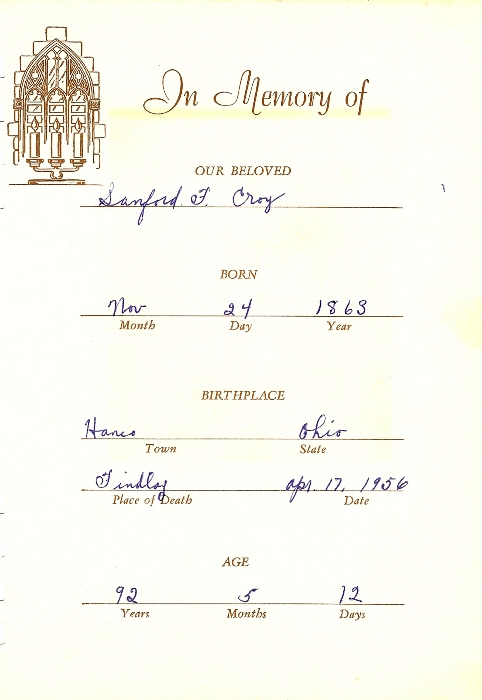 In Memory of
OUR BELOVED
Sanford F. Croy
BORN
Nov 24 1863
Month Day Year
BIRTHPLACE
Hanco Ohio
Town State
Findlay Apr. 17, 1956
Place of Death Date
AGE
92 5 12
Years Months Days